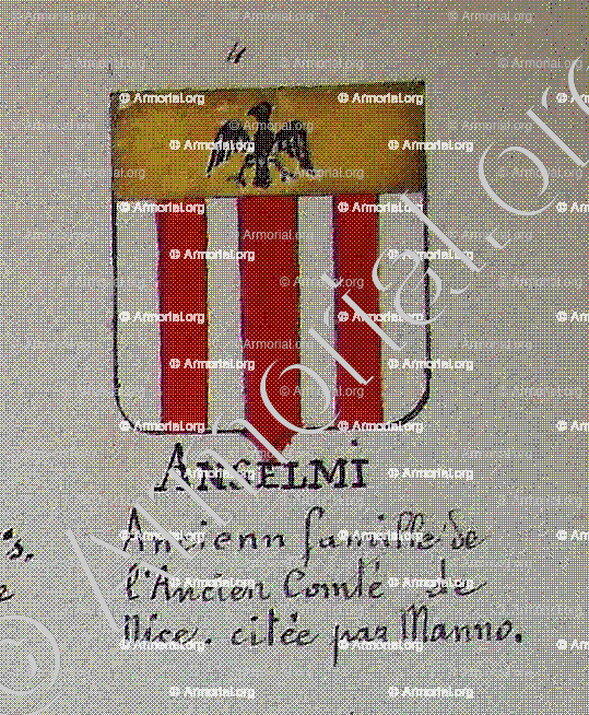 4
ANSELMI
Ancienn famille de
l'Ancien Comté de
Nice. citée par Manno.
© Armorial.org